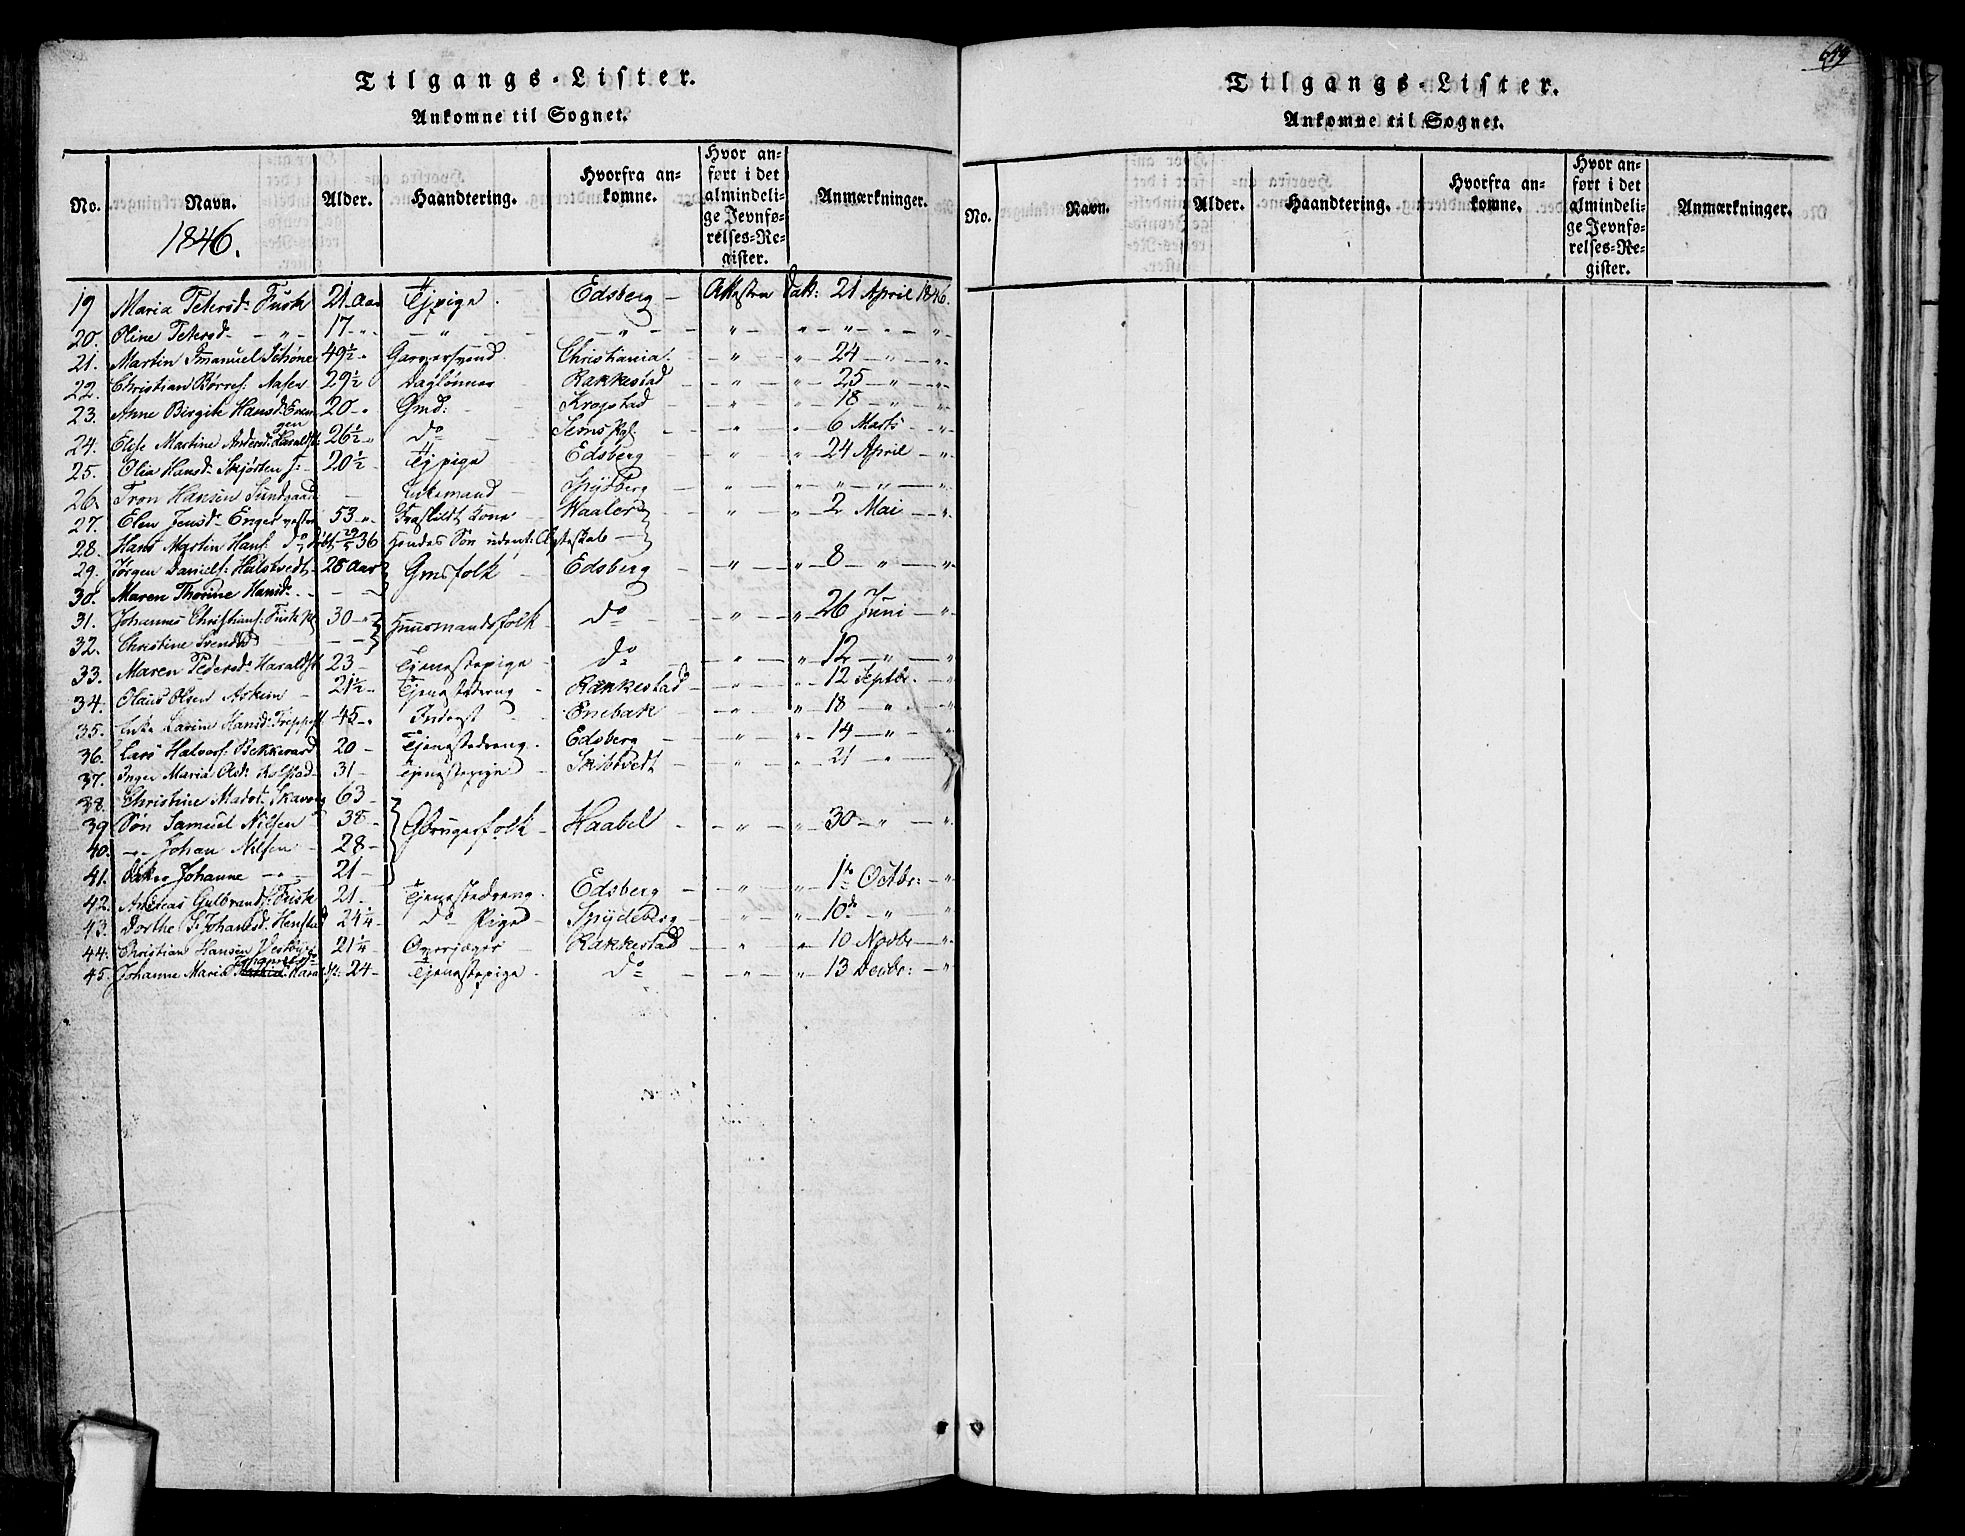 Tilgangs-Lister.
Ankomne til Sognet.
No. Navn. Alder. Haandtering. Hvorfra ankomne. Hvor anført i det almindelige Jevnførelses-Register. Anmærkninger.
1846.
19 Maria Petersd: 21 Aar Tjpige. Edsberg Attesten Dat: 21 April 1846.
20. Oline Petersd 17 " " " " "
21. Martin Imanuel Schöne 49½ Garversvend Christiania " " 24 " "
22. Christian Börres: Aasen 29½ Daglönner Rakkestad " " 25 " "
23. Anne Birgite Hansd: 20 Gmd: Krogstad " " 18 " "
24. Else Martine Anders: Haraldst: 26½ Do " " 6 Marts "
25. Olia Hansd: 20½ Tjpige Edsberg " " 24 April "
26. Tron Hansen Sundgaard Enkemand Spydberg " " " " "
27. Elen Jensd: Enger 53 Fraskildt Kone Vaaler " " 2 Mai "
28. Hans Martin Hans: 36 Hendes Sön udent: Ægteskab
29. Jörgen Daniels: 28 Aar Gmsfolk Edsberg " " 8 " "
30. Maren Thorine Hansd:
31. Johannes Christians: 30 Huusmandsfolk Do " " 26 Juni "
32. Christine Svendsd
33. Maren Pedersd: Haraldst 23 Tjenestepige Do " " 12 " "
34. Olaus Olsen Askim 21½ Tjenestedreng Rakkestad " " 12 Septbr. "
35. Larine Hansd: 45 Inderst Enebak " " 18 " "
36. Lars Halvors: Bekkevard 20 Tjenestedreng. Edsberg " " 14 " "
37. Inger Maria Olsd: Kolstad 31 Tjenestepige Skibtvedt 21 "
38. Christine Madsd: 63
39 Sön Samuel Nilsen 38 Gbrugerfolk Haabel " " 30 " "
40. " Johan Nilsen 28
41. Johanne " 21
42. Gulbrands: 21 Tjenestedreng. Edsberg " " 1te Octbr: "
43. Dorthe Johansd: 24¼ Do Pige Spydeberg " " 10de " "
44. Christian Hansen 21¼ Rakkestad " " 10 Novbr "
45. Johanne Maria 24 Tjenestepige Do " " 13 Decbr: "
Tilgangs-Lister.
Ankomne til Sognet.
No. Navn. Alder. Haandtering. Hvorfra ankomne. Hvor anført i det almindelige Jevnførelses-Register. Anmærkninger.